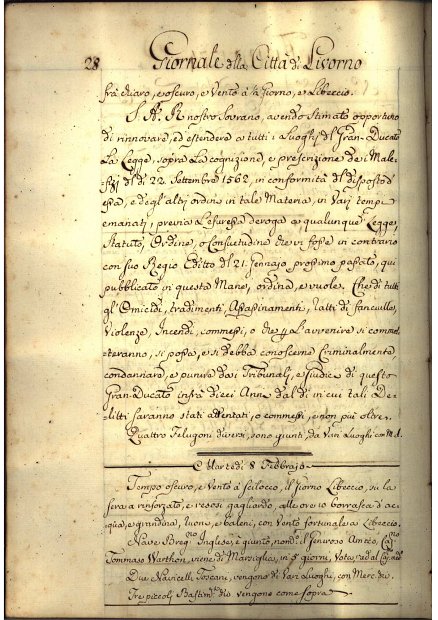 28 Giornale della Città di Livorno
frà chiaro, e oscuro, e Vento à ½ Giorno, e Libeccio.
S. A. R. nostro Sovrano, avendo stimato opportuno
di rinnovare, ed estendere a tutti i Luoghi del Gran-Ducato
La Legge, sopra La cognizione, e prescrizione de i Male-
fizi del dì 22. Settembre 1562, in conformità del disposto d'
essa, e degl'altri ordini in tale Materia, in Varj tempi
emanati, previa L'espressa deroga a qualunque Legge,
Statuto, Ordine, o Consuetudine che vi fosse in contrario
con suo Regio Editto del 21. Gennajo prossimo passato, qui
pubblicato in questa Mane, ordina, e vuole. Che di tutti
gl'Omicidj, tradimenti, Assassinamenti, ratti di fanciulle,
Violenze, Incendj, commessi, o che p. L'avvenire si commet-
teranno, si possa, e si debba conoscerne Criminalmente,
condannare, e punire da i Tribunali, e Giudici di questo
Gran-Ducato infrà dieci Anni dal dì in cui tali De-
litti saranno stati attentati, o commessi, e non più oltre.
Quattro Felugoni diversi, sono giunti, da Varj Luoghi con M. d.
Martedì 8 Febbrajo
Tempo oscuro, e Vento à scilocco, il Giorno Libeccio, sù la
sera a rinforzato, e resosi gagliardo, alle ore 10 borrasca d'ac
qua, e grandine, tuoni, e baleni, con Vento fortunale a Libeccio.
Nave Brig.no Inglese, è giunto, nom.to il Generoso Amico, Ca.no
Tommaso Warthon, viene di Marsiglia, in 5 giorni, Vota, al
Due Navicelli Toscani, vengono di Varj Luoghi, con Merc. div.
Tre piccoli Bastim.ti div. vengono come sopra